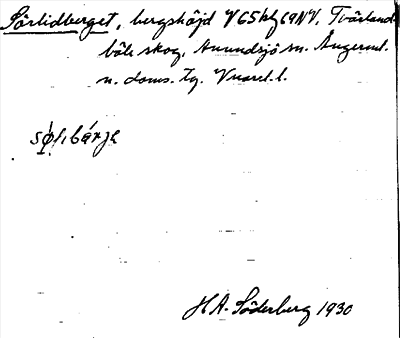 Sörlidberget, bergshöjd V65hf69NV. Tvärland-
böle skog, Anundsjö sn. Ångerml.
n. doms. tg. Vnorrl. l.
H A. Söderberg 1930